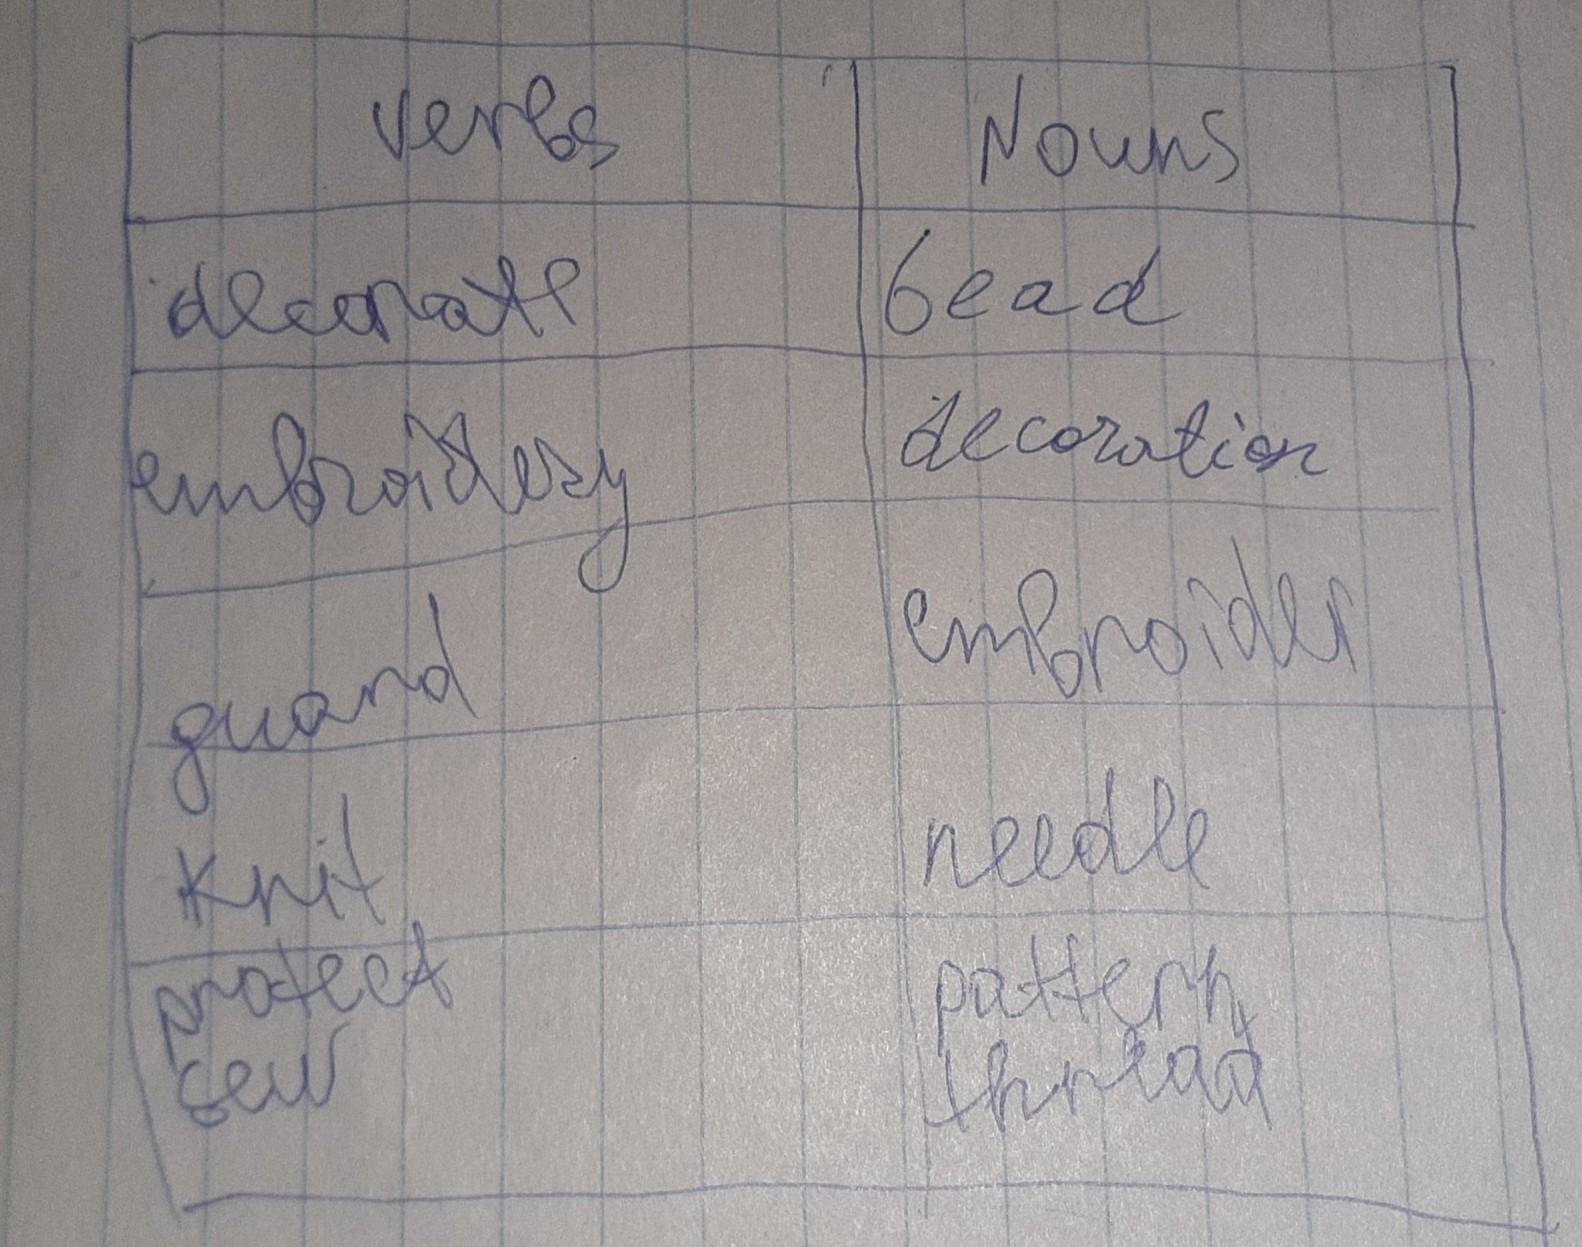 verbs Nouns
decorate bead
embroidery decoration
guard embroider
knit needle
protect pattern
sew thread